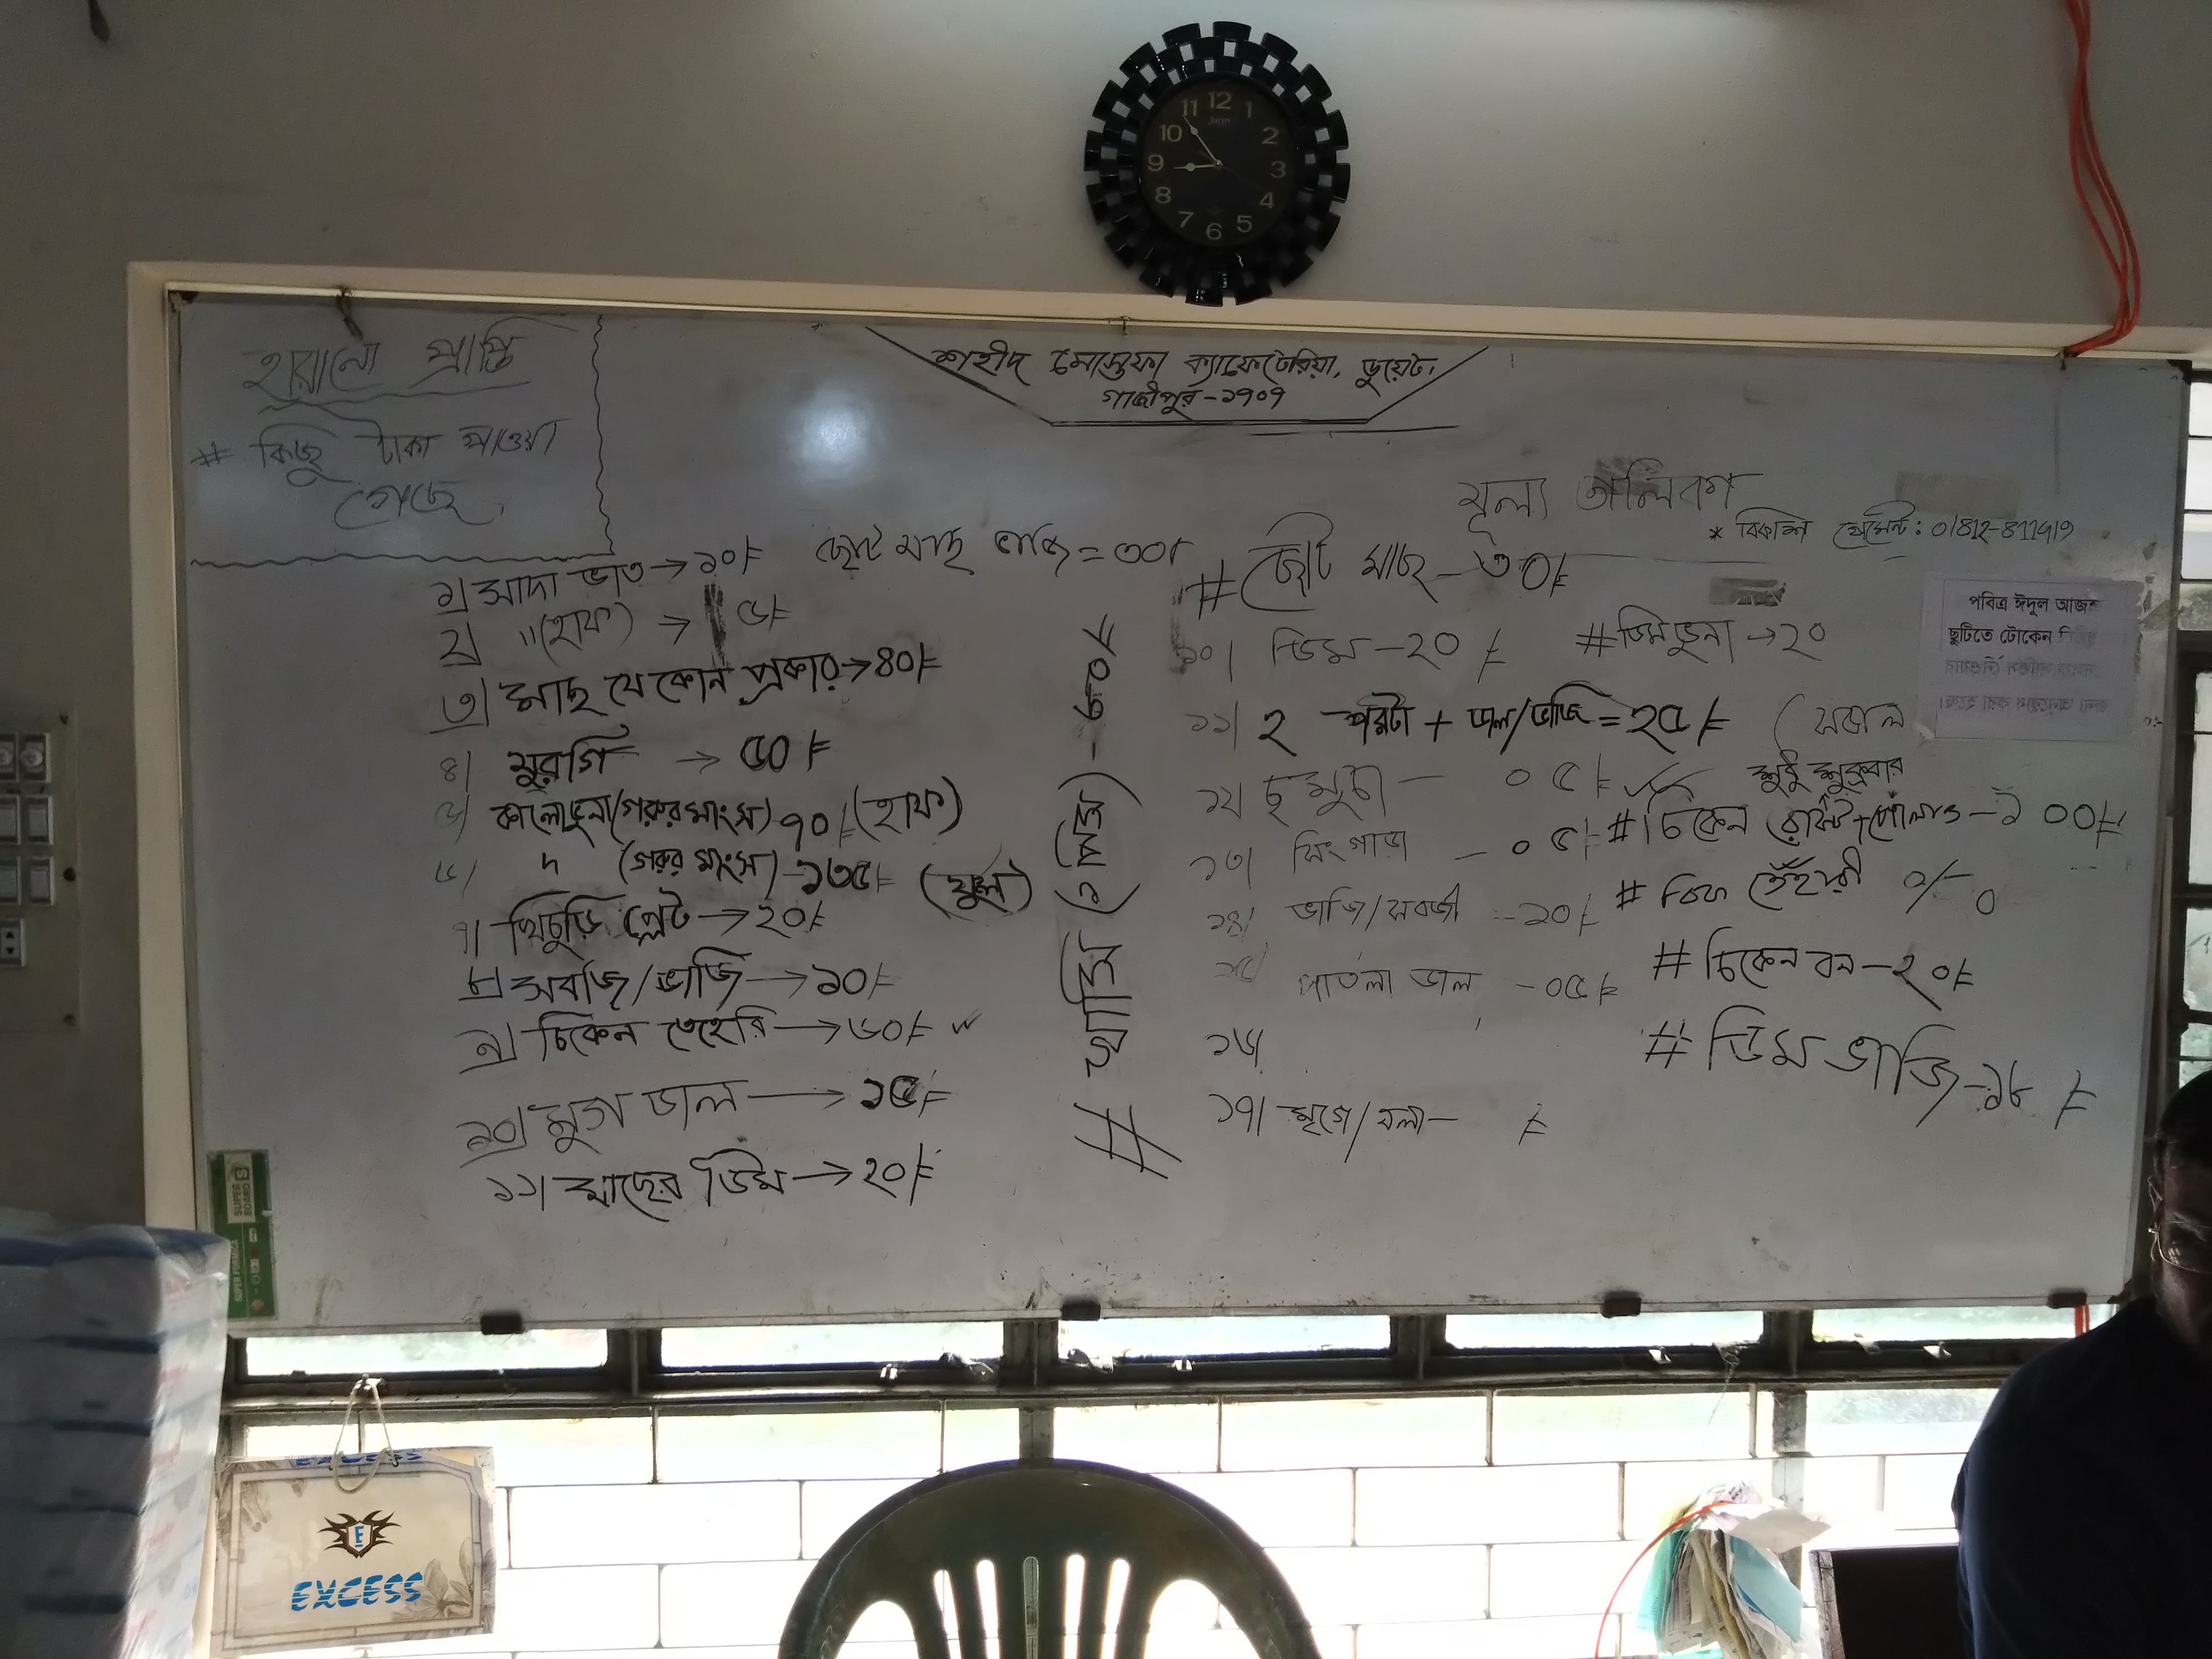 হারানো প্রাপ্তি
# কিছু টাকা পাওয়া
গেছে,
শহীদ মোস্তফা ক্যাফেটেরিয়া, ডুয়েট,
গাজীপুর-১৭০৭
মূল্য তালিকা
* বিকাশ পেমেন্ট:
ছোট মাছ ভাজি = ৩০৲
১) সাদা ভাত → ১০৳
২) "(হাফ) → ৫৳
৩) মাছ যে কোন প্রকার → ৪০৳
৪) মুরগি → ৫০৳
৫) কালোভুনা (গরুর মাংস) ৭০৳ (হাফ)
৬) " (গরুর মাংস) - ১৩৫৳ (ফুল)
৭) খিচুড়ি প্লেট → ২০৳
৮) সবজি/ভাজি → ১০৳
৯) চিকেন তেহেরি → ৬০৳
১০) মুগ ডাল → ১৫৳
১১) মাছের ডিম → ২০৳
# খাসি (১ পিস) -
# ছোট মাছ - ৩০৳
১০) ডিম - 20 ৳
# ডিম ভুনা → ২০
১১) ২ পরটা + ডাল/ভাজি = ২৫৳ (সকাল
১২) ছমুচা - ০৫৳
১৩) সিংগাড়া - ০৫৳
১৪) ভাজি/সবজী - ১০৳
১৫) পাতলা ডাল - ০৫৳
১৬)
১৭) মৃগে/ - ৳
শুধু শুক্রবার
# চিকেন রোস্ট + পোলাও - ১০০৳
# বিফ
# চিকেন বন - ২০৳
# ডিম ভাজি - ১৮ ৳
পবিত্র ঈদুল আজহ
ছুটিতে টোকেন
12 1 2 3 4 5 6 7 8 9 10 11
SUPER BOARD
SUPER FORMICA
EXCESS
E
EXCESS